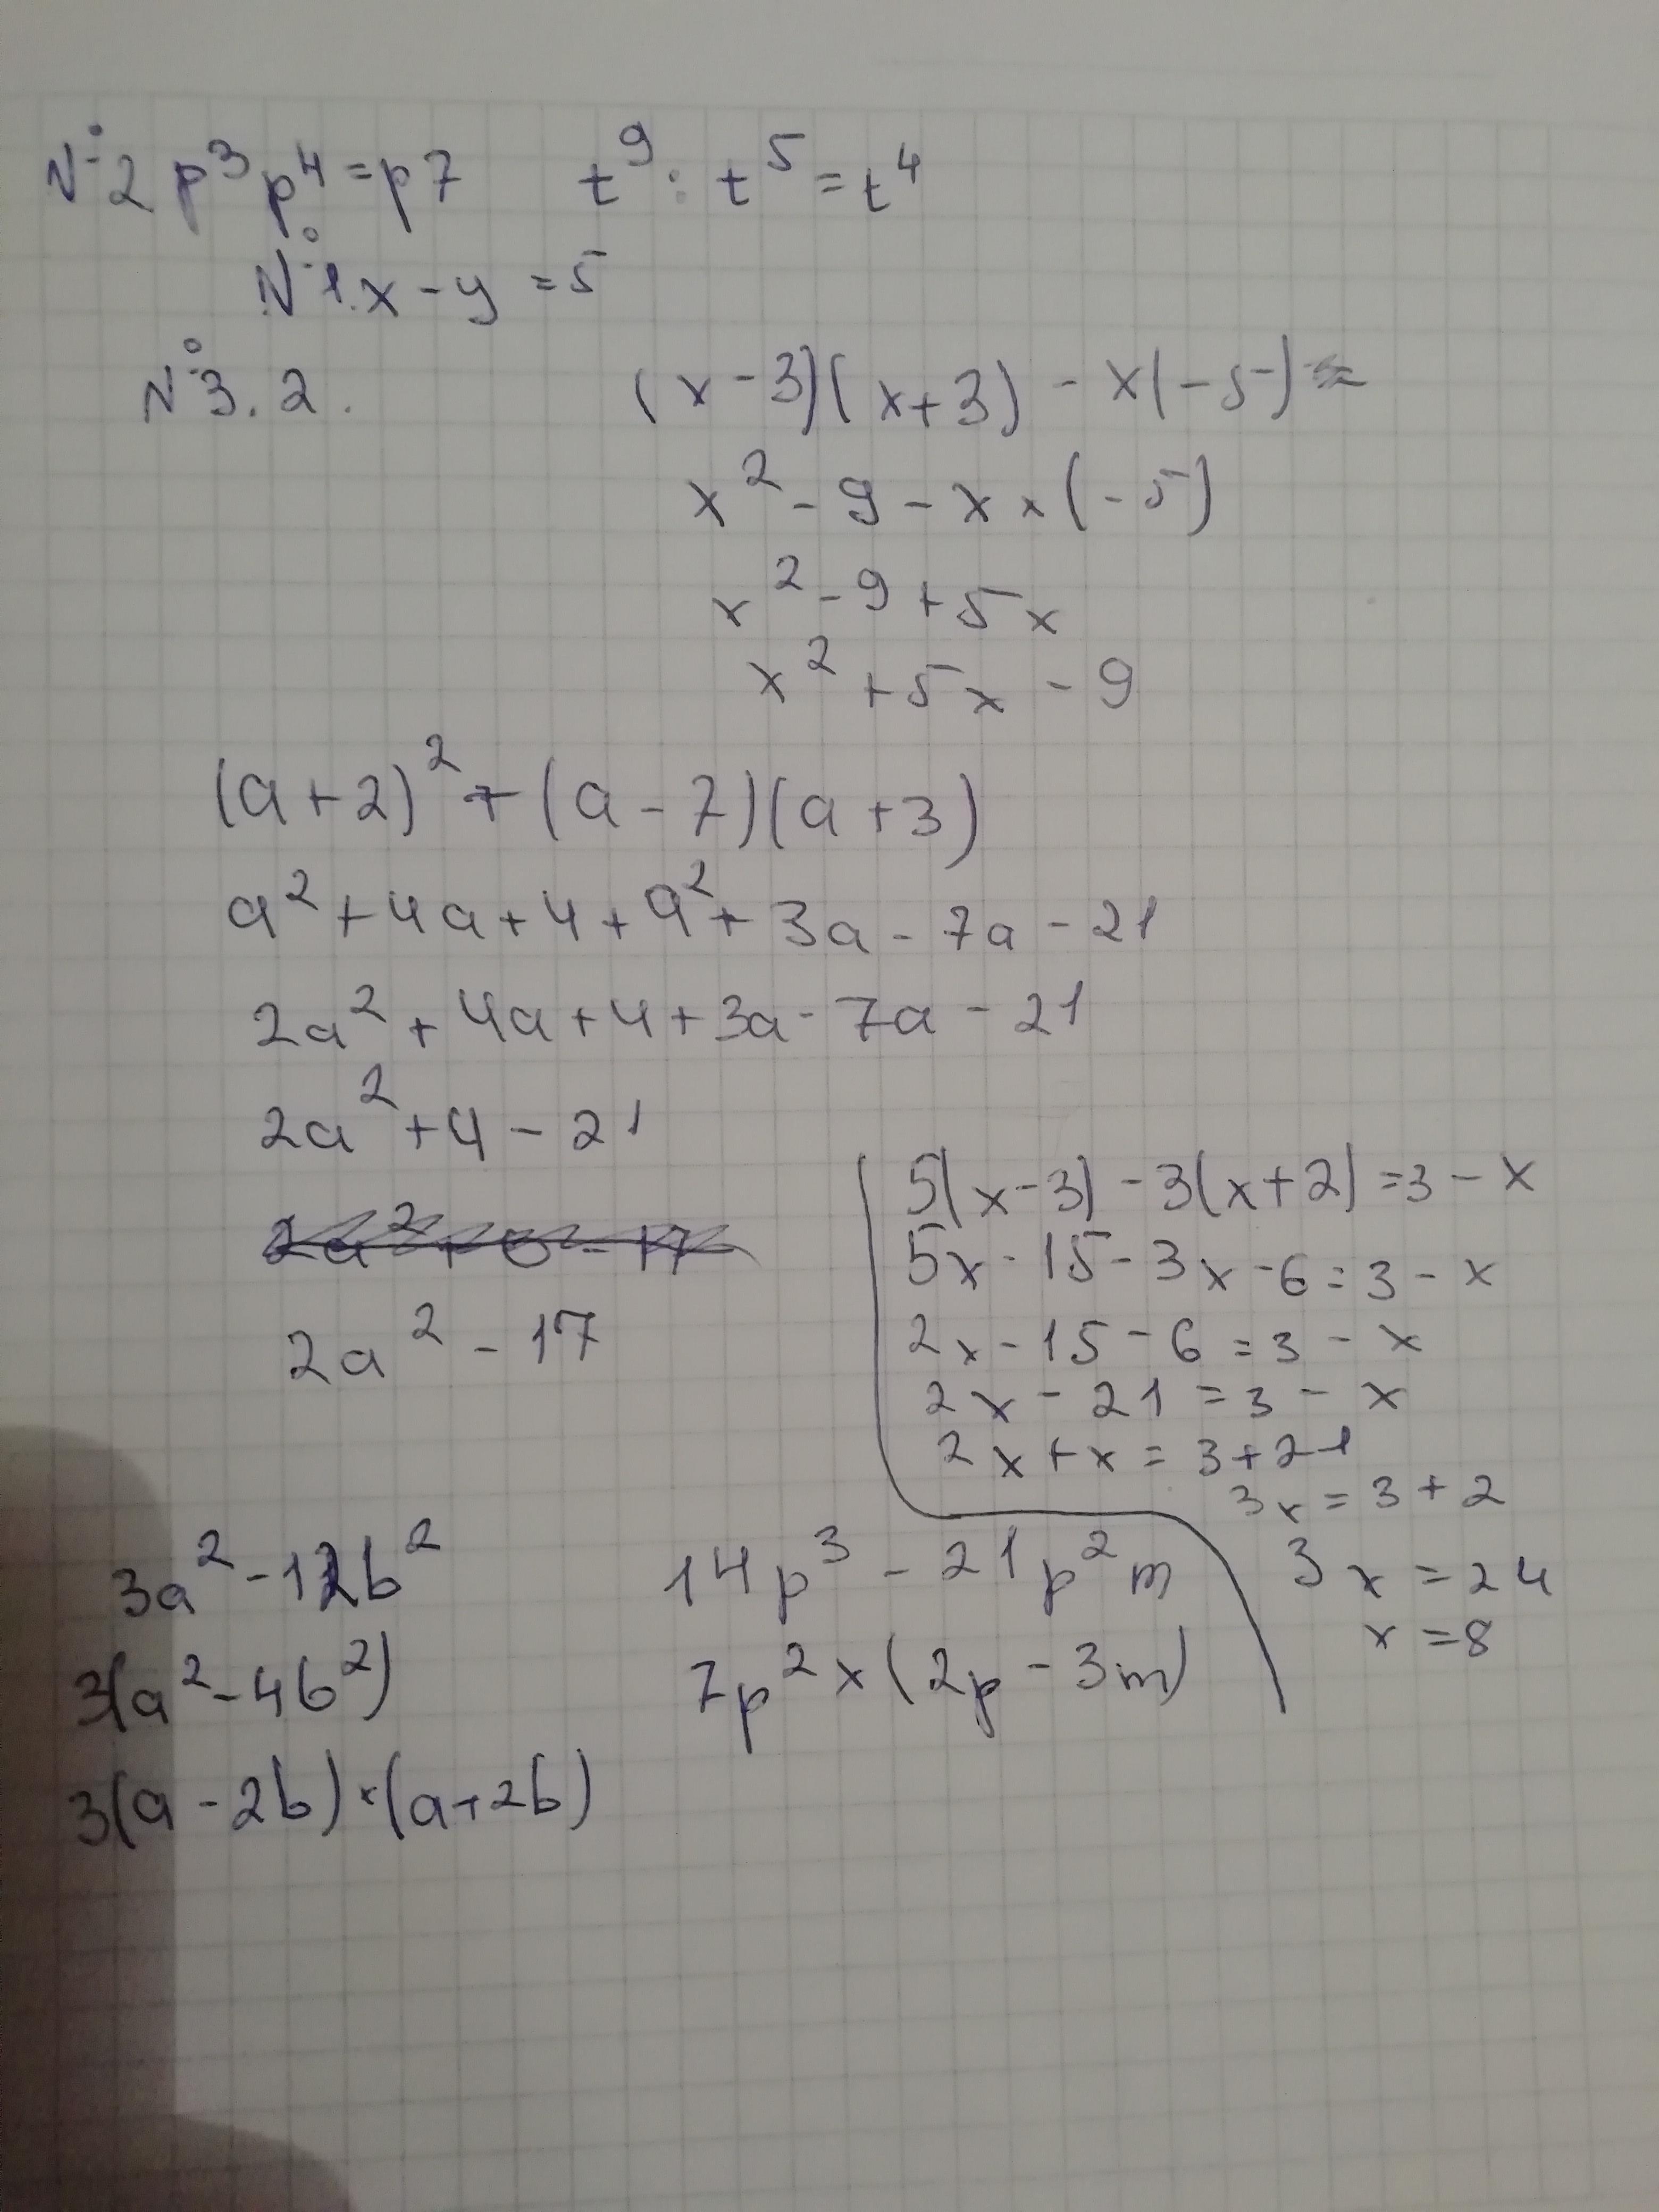 №2 p³p⁴=p7 t⁹:t⁵=t⁴
№1.x-y=5
№3.2. (x-3)(x+3)-x(-5)=
x²-9-x×(-5)
x²-9+5x
x²+5x-9
(a+2)²+(a-7)(a+3)
a²+4a+4+a²+3a-7a-21
2a²+4a+4+3a-7a-21
2a²+4-21
2a²-17
5(x-3)-3(x+2)=3-x
5x-15-3x-6=3-x
2x-15-6=3-x
2x-21=3-x
2x+x=3+21
3x=3+2
3x=24
x=8
3a²-12b²
3(a²-4b²)
3(a-2b)×(a+2b)
14p³-21p²m
7p²×(2p-3m)